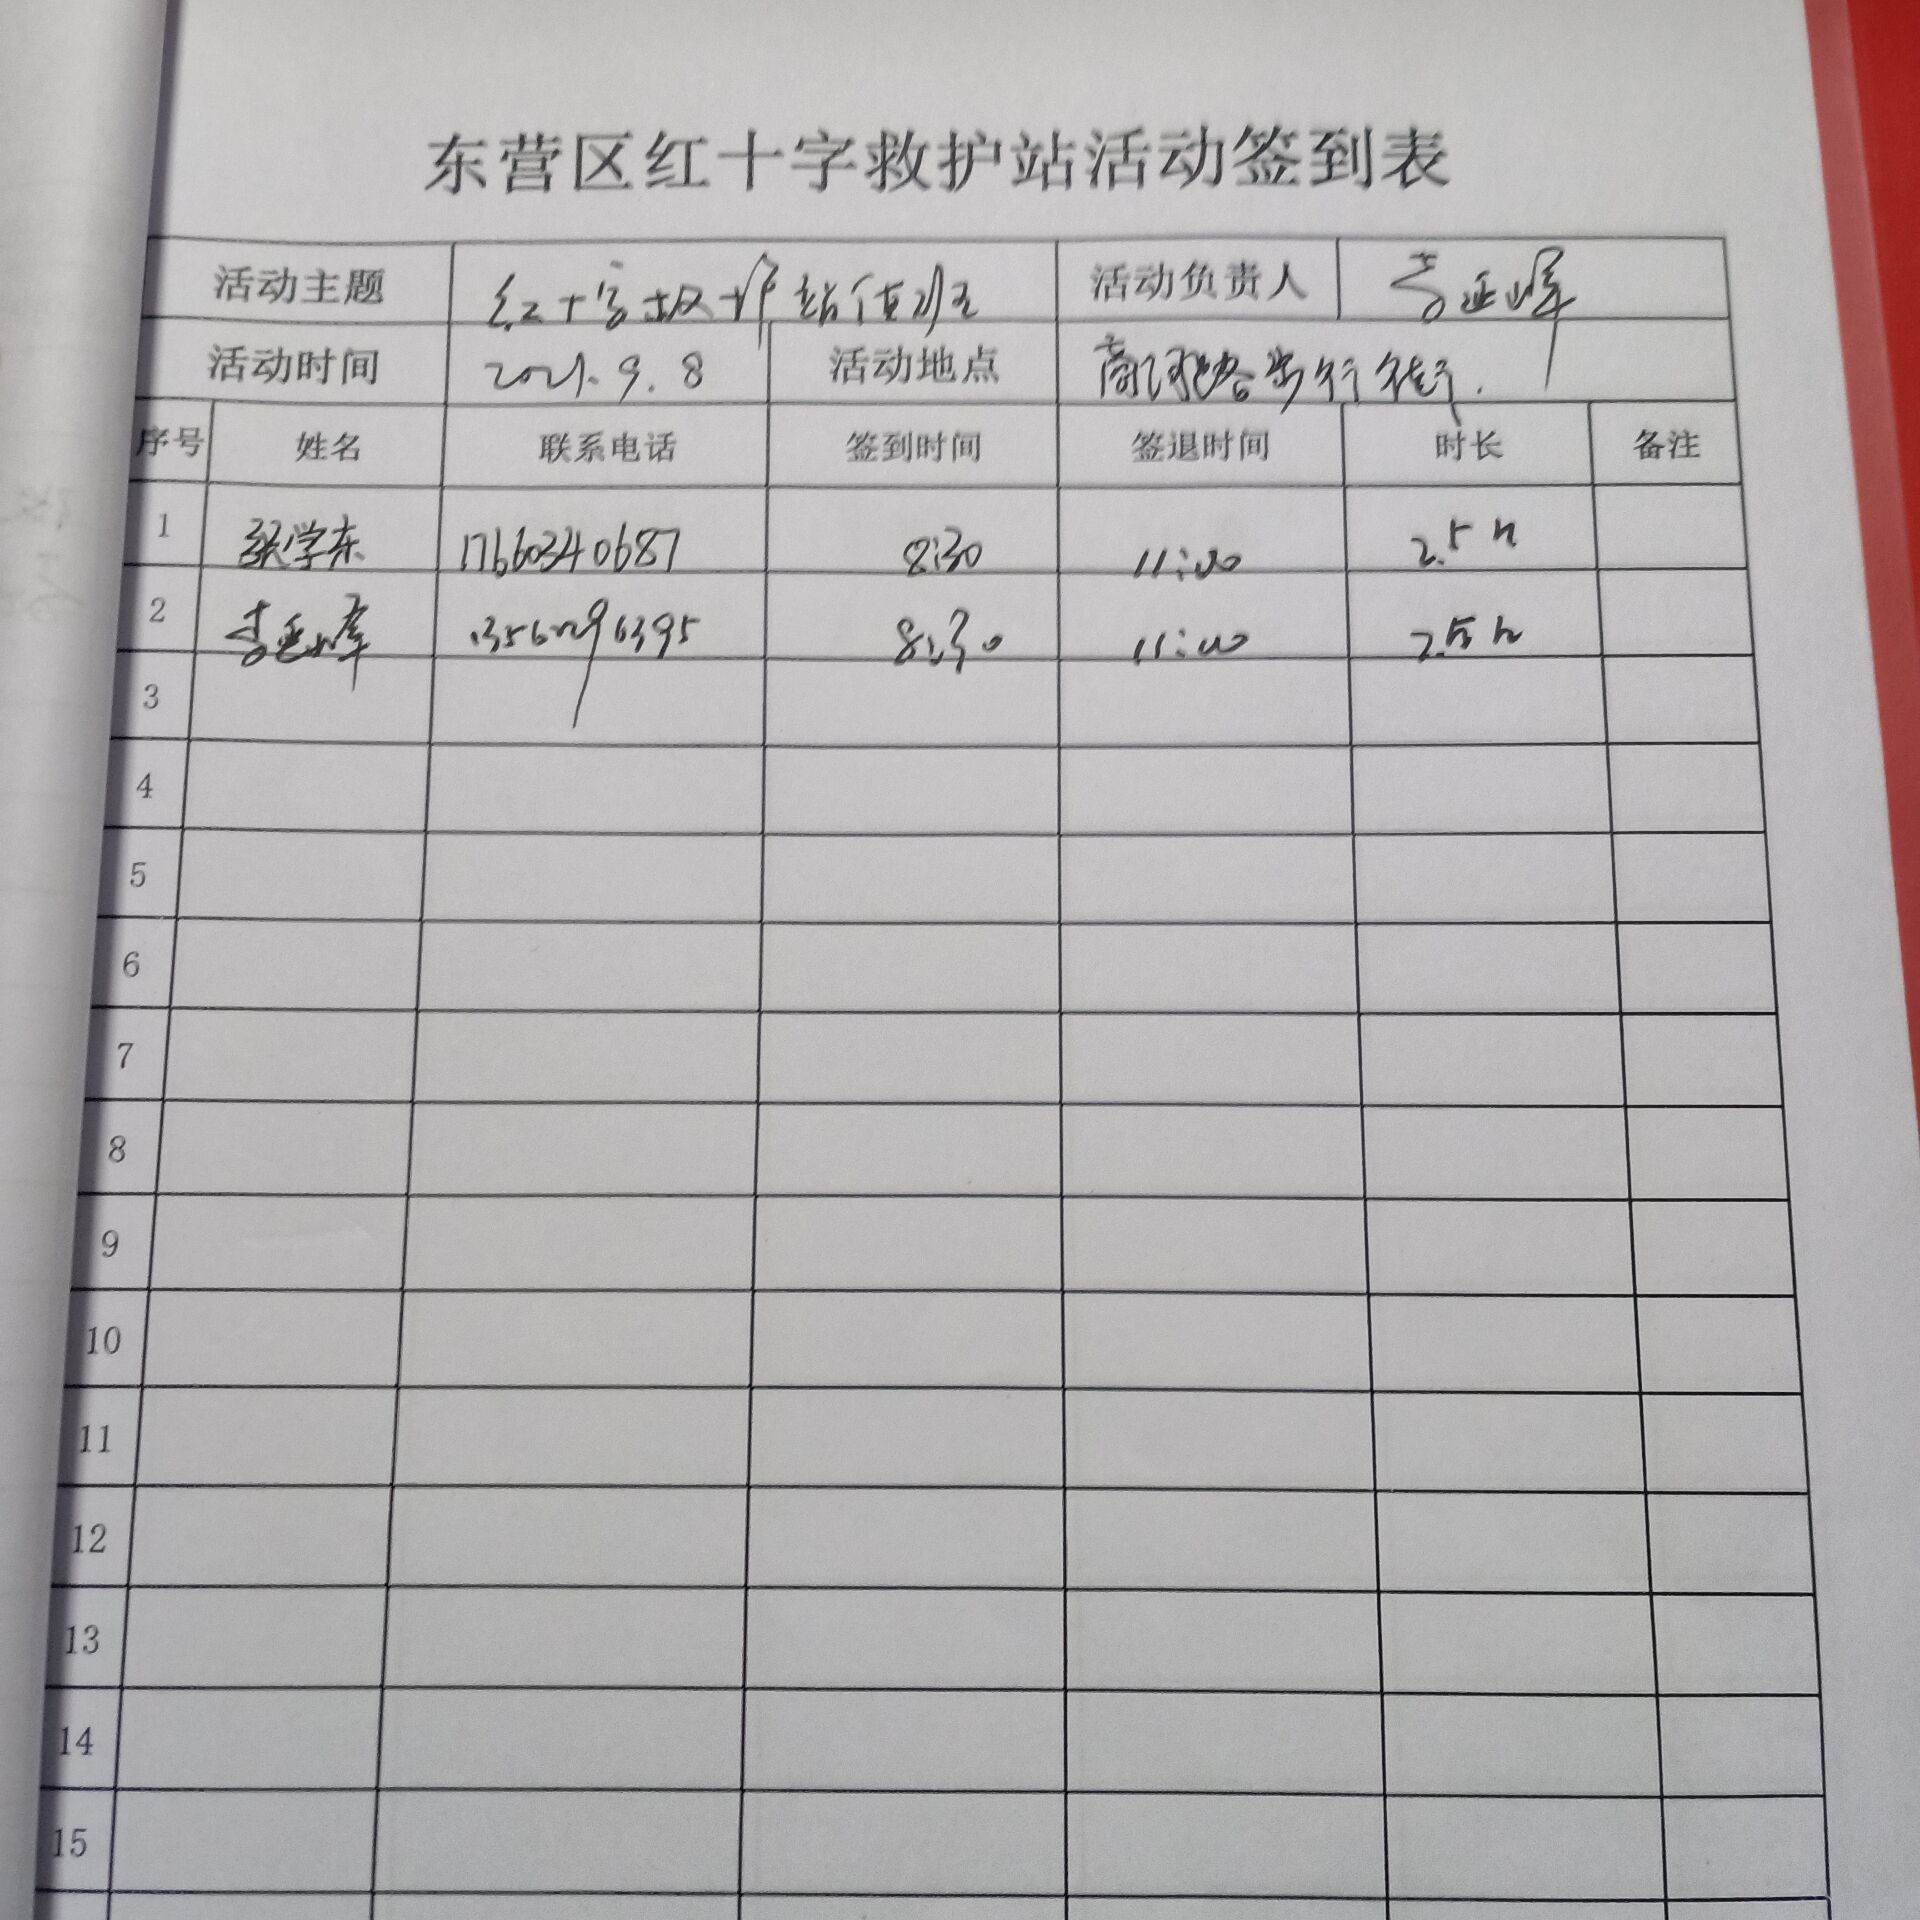 东营区红十字救护站活动签到表
活动主题 红十字救护站值班 活动负责人 李延峰
活动时间 2021.9.8 活动地点 商河路步行街.
序号 姓名 联系电话 签到时间 签退时间 时长 备注
1 张学东 17660340687 8:30 11:00 2.5h
2 李延峰 8:30 11:00 2.5h
3
4
5
6
7
8
9
10
11
12
13
14
15